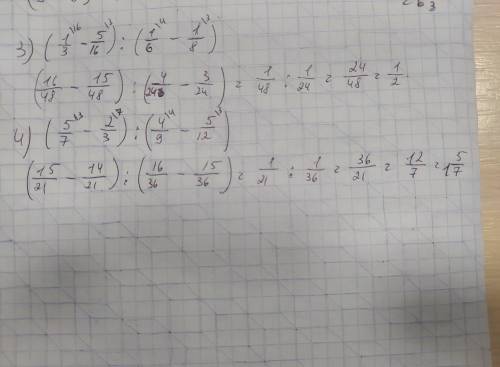 3) (1/3^16 - 5/16^3) : (1/6^4 - 1/8^3)
(16/48 - 15/48) : (4/24 - 3/24) = 1/48 : 1/24 = 24/48 = 1/2.
4) (5/7^3 - 2/3^7) : (4/9^4 - 5/12^3)
(15/21 - 14/21) : (16/36 - 15/36) = 1/21 : 1/36 = 36/21 = 12/7 = 1 5/7